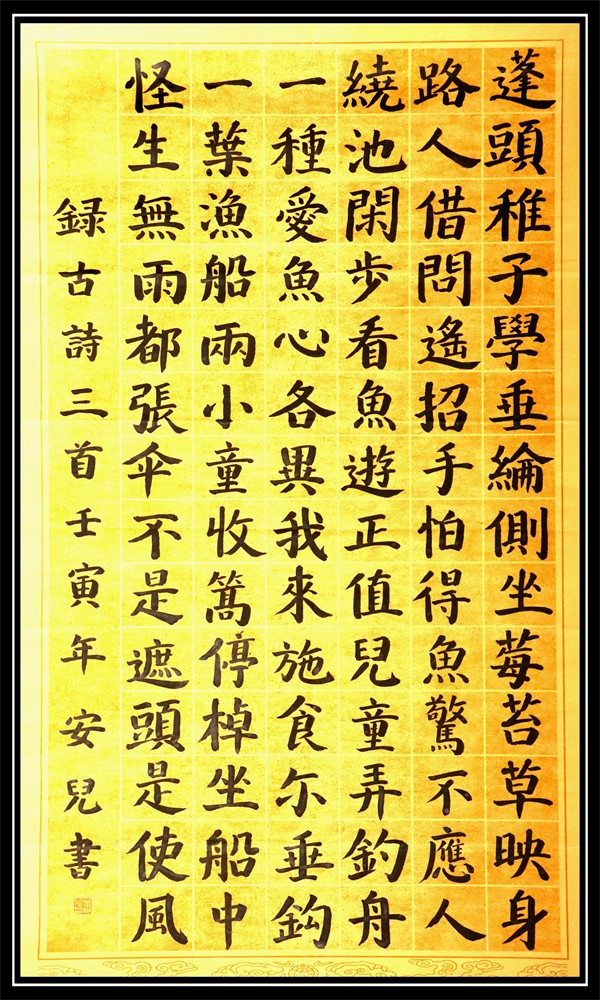 蓬頭稚子學垂綸側坐莓苔草映身
路人借問遙招手怕得魚驚不應人
繞池閑步看魚遊正值兒童弄釣舟
一種愛魚心各異我來施食尔垂鈎
一葉漁船兩小童收篙停棹坐船中
怪生無雨都張伞不是遮頭是使風
録古詩三首壬寅年安兒書